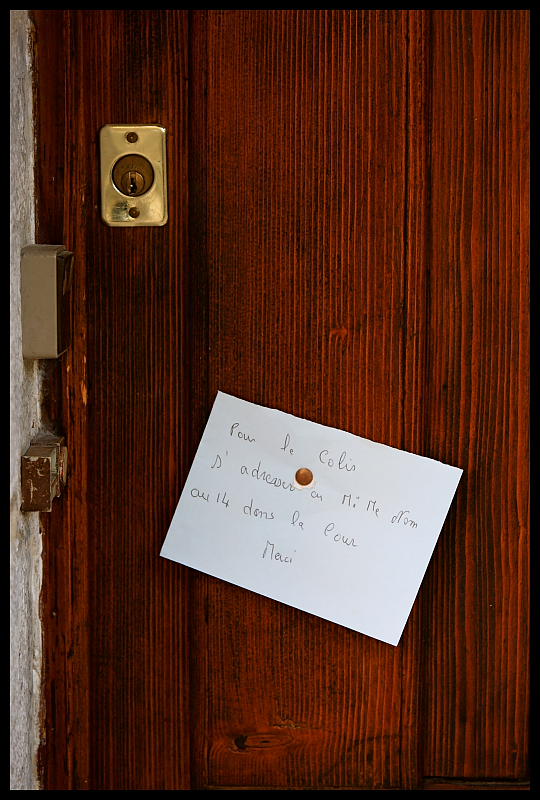 Pour le Colis
s'adresser au Mr Me
au 14 dans la Cour
Merci